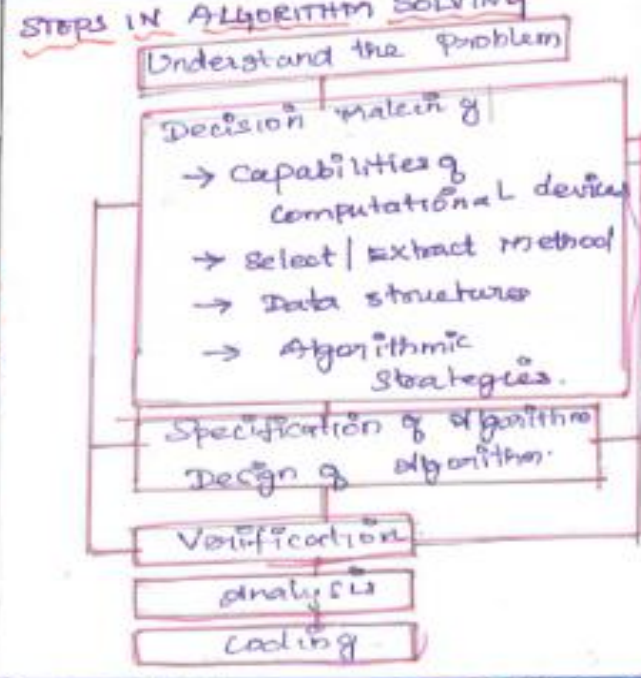 STEPS IN ALGORITHM SOLVING
Understand the Problem
Decision Making
→ Capabilities of
computational devices
→ Select | Extract method
→ Data structures
→ Algorithmic
Strategies.
Specification of algorithm
Design of algorithm.
Verification
analysis
coding